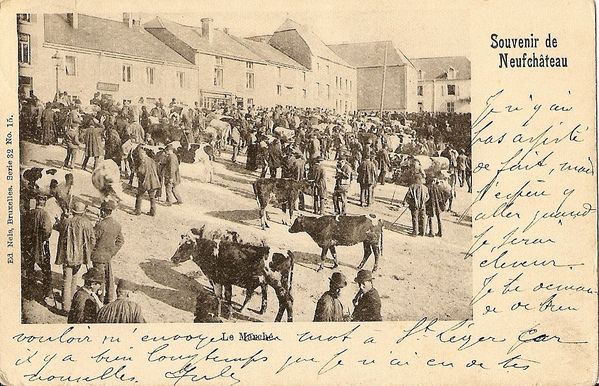 Souvenir de
Neufchâteau
Ed. Nels, Bruxelles. Serie 32 No. 15.
Je n'y ai
pas assisté
de fait, mais
j'espère y
aller quand
je serai
éleveur.
Je te deman
de de bien
vouloir m'envoyer un mot à St Léger car
Le Marché.
il y a bien longtemps que je n'ai eu de tes
nouvelles. Jules